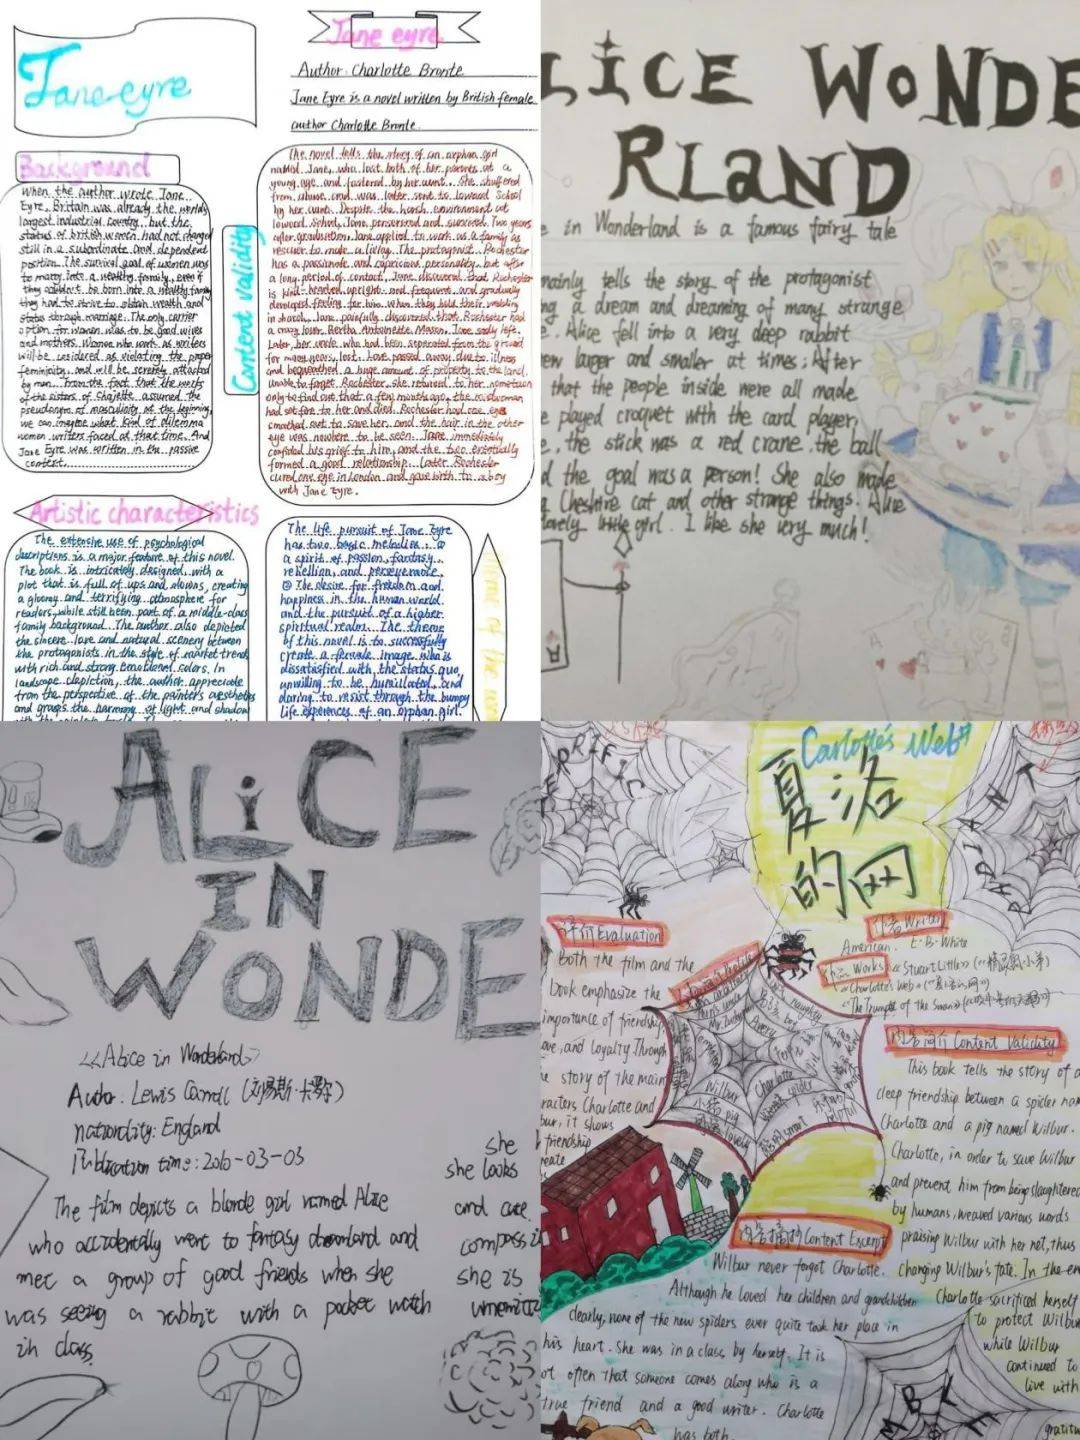 Jane eyre
Background
When the author wrote Jane
Eyre, Britain was already the world's
largest industrial country, but the
status of british women had not changed
still in a subordinate and dependent
position. The survival goal of women was
to marry into a wealthy family, even if
they couldn't be born into a wealthy family
they had to strive to obtain wealth and
status through marriage. The only carrier
option for women was to be good wives
and mothers. Women who work as writers
will be considered as violating the proper
femininity, and will be severely attacked
by man. From the fact that the works
of the sisters of assumed the
of masculinity at the beginning,
we can imagine what kind of dilemma
women writers faced at that time. And
Jane Eyre was written in the passive
context.
Jane eyre
Author: Charlotte Bronte
Jane Eyre is a novel written by British female
author Charlotte Bronte.
Content validity
The novel tells the story of an orphan girl
named Jane, who lost both of her parents at a
young age and fostered by her aunt. She shuffered
from abuse and was later sent to Lowood School
by her aunt. Despite the harsh environment at
Lowood School, Jane persevered and survived. Two years
after graduation, Jane applied to work as a family
to make a living. The protagonist Rochester
has a passionate and capricious personality, but after
a long period of contact, Jane discovered that Rochester
is kind-headed, upright, and frequent and gradually
developed feeling for him. When they held their wedding
in church, Jane painfully discovered that Rochester had
a crazy lover Bertha Antoinette Mason. Jane sadly left.
Later, her uncle, who had been separated from the ground
for many years, lost, passed away due to illness
and bequeathed a huge amount of property to the land.
Unable to forget Rochester, she returned to her
only to find out that a few months ago, the madwoman
had set fire to her and died. Rochester had one eye
out to save her, and the hair in the other
eye was nowhere to be seen. Jane immediately
confided his grief to him, and the two eventually
formed a good relationship. Later Rochester
cured one eye in London and gave birth to a boy
with Jane Eyre.
Artistic characteristics
The extensive use of psychological
descriptions is a major feature of this novel.
The book is intricately designed, with a
plot that is full of ups and downs, creating
a gloomy and terrifying atmosphere for
readers, while still been part of a middle-class
family background. The author also depicted
the sincere love and natural scenery between
the protagonists in the style of market trend
with rich and strong emotional colors. In
landscape depiction, the author appreciate
from the perspective of the painter's aesthetics
and grasps the harmony of light and shadow
The life pursuit of Jane Eyre
has two basic melodies:
a spirit of passion, fantasy,
rebellion, and perseverance,
② The desire for freedom and
happiness in the human world
and the pursuit of a higher
spiritual realm. The theme
of this novel is to successfully
create a female image who is
dissatisfied with the status quo,
unwilling to be humiliated, and
daring to resist through the bumpy
life experiences of an orphan girl.
LICE WONDE
RLAND
e in Wonderland is a famous fairy tale
mainly tells the story of the protagonist
ng a dream and dreaming of many strange
. Alice fell into a very deep rabbit
ew larger and smaller at times; After
that the people inside were all made
e played croquet with the card player,
e, the stick was a red crane. the ball
d the goal was a person! She also made
Cheshire cat and other strange things. Alice
lovely little girl. I like she very much!
A
ALiCE
IN
WONDE
<<Alice in Wonderland>>
Author: Lewis Carroll (刘易斯·卡罗尔)
nationality: England
Publication time: 2010-03-03
The film depicts a blonde girl named Alice
who accidentally went to fantasy dreamland and
met a group of good friends when she
was seeing a rabbit with a pocket watch
in class.
she
she looks
and cute.
compassi
she is
TERRIFIC
Carlotte's Web
夏洛
的网
RADIANT
评价Evaluation
Both the film and the
book emphasize the
importance of friendship,
love, and loyalty Through
e story of the main
racters Charlotte and
bur, it shows
friendship
reate
Avery
Wilbur
小猪 pig
可爱lovely
Charlotte
spider
聪明smart
作者Writer
American. E·B·White
作品 Works «Stuart Little» («精灵鼠小弟»)
«Charlotte's Web» («夏洛的网»)
«The Trumpet of the Swan»
内容简介 Content Validity
This book tells the story of a
deep friendship between a spider nam
Charlotte and a pig named Wilbur.
Charlotte, in order to save Wilbur
and prevent him from being slaughtered
by humans, weaved various words
praising Wilbur with her net, thus
changing Wilbur's fate. In the en
Charlotte sacrificed herself
to protect Wilbu
while Wilbur
continued to
live with
gratitu
内容摘抄Content Excerpt
Wilbur never forgot Charlotte.
Although he loved her children and grandchildren
clearly, none of the new spiders ever quite took her place in
his heart. She was in a class by herself. It is
ot often that someone comes along who is a
true friend and a good writer. Charlotte
was both.